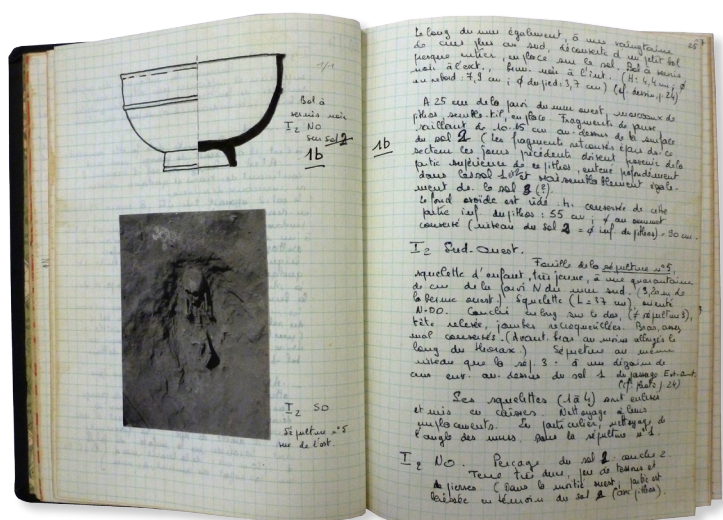 1/1
Bol à
vernis noir
I2 NO
sur sol 2
1b
I2 SO
Sépulture n°5
vue de l'est.
25
Le long du mur également, à une vingtaine
de cms plus au sud, découverte d'un petit bol
presque entier, en place sur le sol. Bol à vernis
noir à l'ext., brun noir à l'int. (H: 4,4 cm; ∅
au rebord: 7,9 cm; ∅ du pied: 3,7 cm) (cf. dessin p. 24)
1b
A 25 cm de la paroi du mur ouest, morceaux de
pithos, semble-t-il, en place. Fragments de panse
saillant de 10-15 cm au-dessus de la surface
du sol 2 (les fragments retrouvés épars de ce
secteur les jours précédents doivent provenir de la
partie supérieure de ce pithos, enterré profondément
dans le sol et vraisemblablement égale-
ment de le sol 2 (?).
Le fond ovoïde est vide. H. conservée de cette
partie inf. du pithos: 55 cm; ∅ au sommet
conservé (niveau du sol 2 = ∅ inf. du pithos) = 90 cm.
I2 Sud-Ouest.
Fouille de la sépulture n°5,
squelette d'enfant, très jeune, à une quarantaine
de cm de la paroi N du mur sud. (3,20 m de
la berme ouest.) Squelette (L = 37 cm), orienté
N-OO. Couché en long sur le dos, (≠ sépulture 3),
tête relevée, jambes recroquevillées. Bras, assez
mal conservés. (Avant-bras au moins allongés le
long du thorax.) Sépulture au même
niveau que la sép. 3: à une dizaine de
cms env. au-dessus du sol 1 du passage Est-Ouest.
(cf. photo p. 24)
Les squelettes (1 à 4) sont enlevés
et mis en caisses. Nettoyage à leurs
emplacements. En particulier, nettoyage de
l'angle des murs, sous la sépulture n°1.
I2 NO. Perçage du sol 2 - couche 2.
Terre très dure, peu de tessons et
de pierres (Dans la moitié ouest, partie est
laissée en témoin du sol 2 (avec pithos).